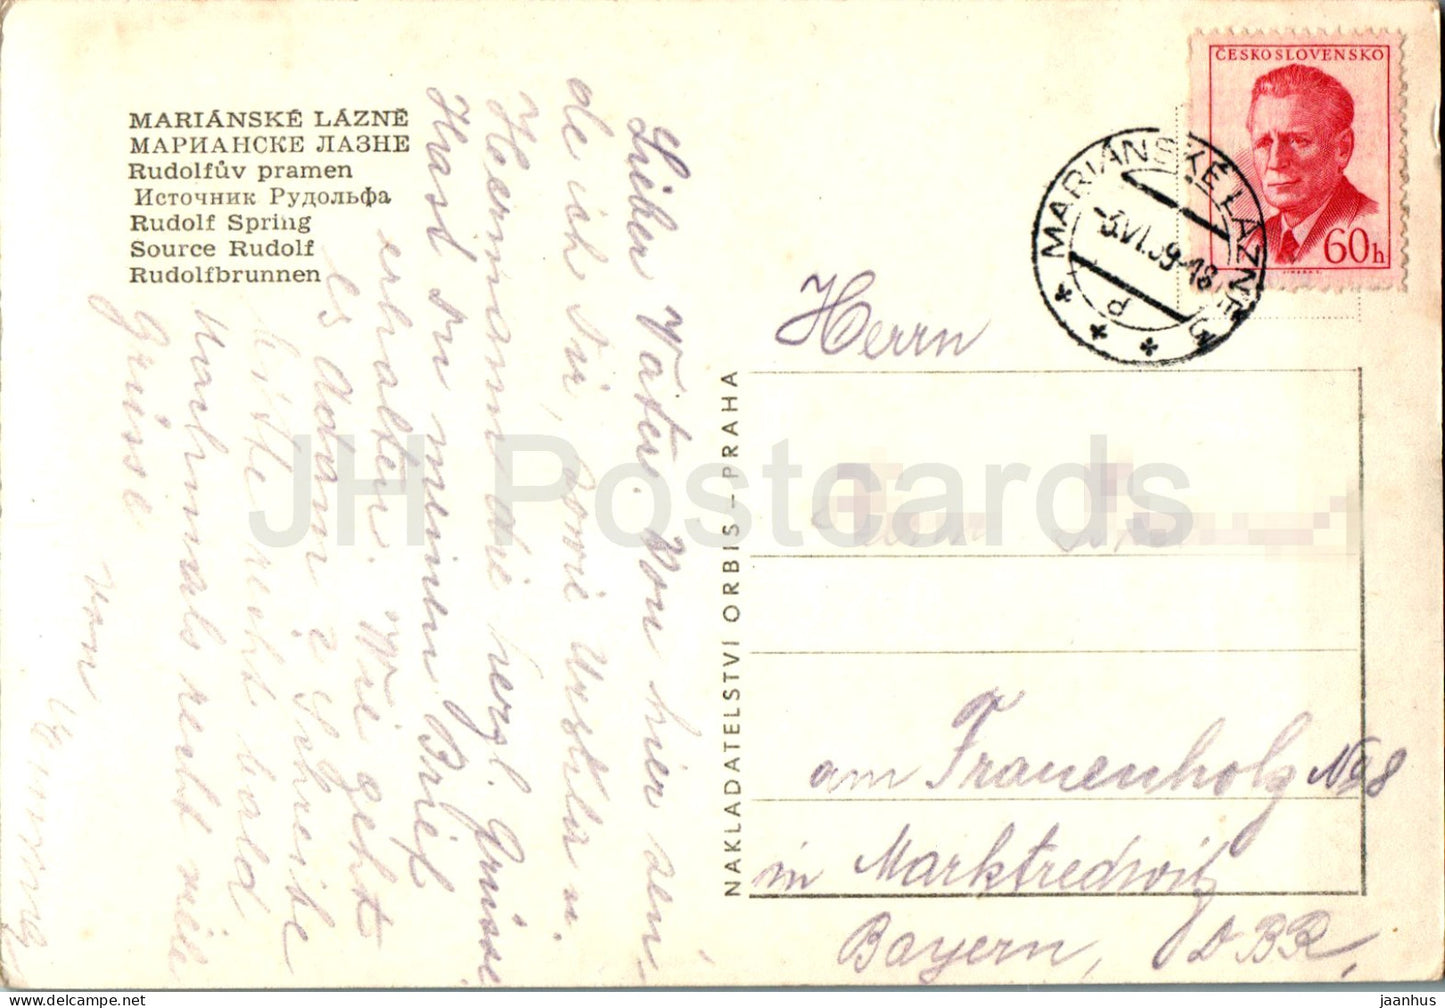 MARIÁNSKÉ LÁZNĚ
МАРИАНСКЕ ЛАЗНЕ
Rudolfův pramen
Источник Рудольфа
Rudolf Spring
Source Rudolf
Rudolfbrunnen
Lieber Vater. Von hier sen-
de ich Dir, sowie Urskla u.
Hermann die herzl. Grüsse
Hast Du meinen Brief
erhalten. Wie geht
es Adam? Schreibe
bitte recht bald
Nochmals recht viele
Grüsse
von
NAKLADATELSTVÍ ORBIS — PRAHA
ČESKOSLOVENSKO
60h
MARIÁNSKÉ LÁZNĚ 3
-3.VI.59-18
d
Herrn
am Frauenholz No 8
in Marktredwitz
Bayern, DBR,
JH Postcards
delcampe.net
jaanhus